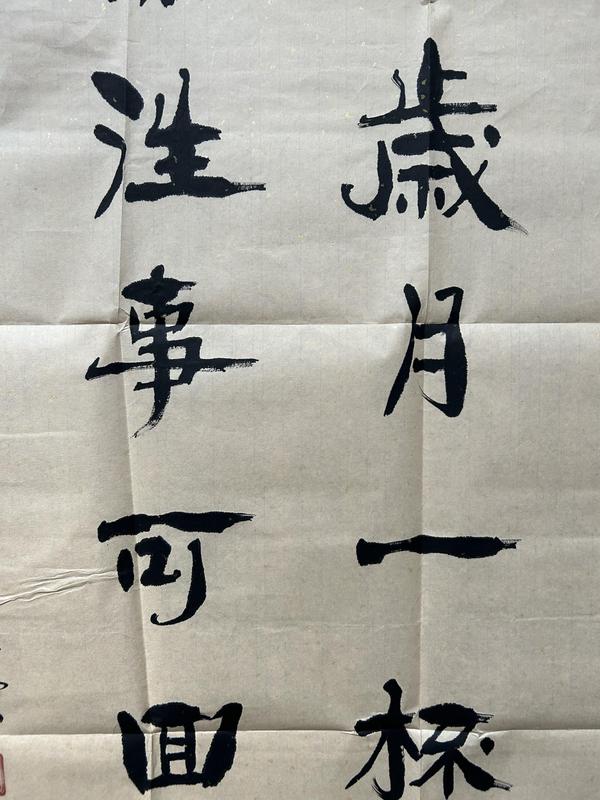 歳月一杯
往事可回